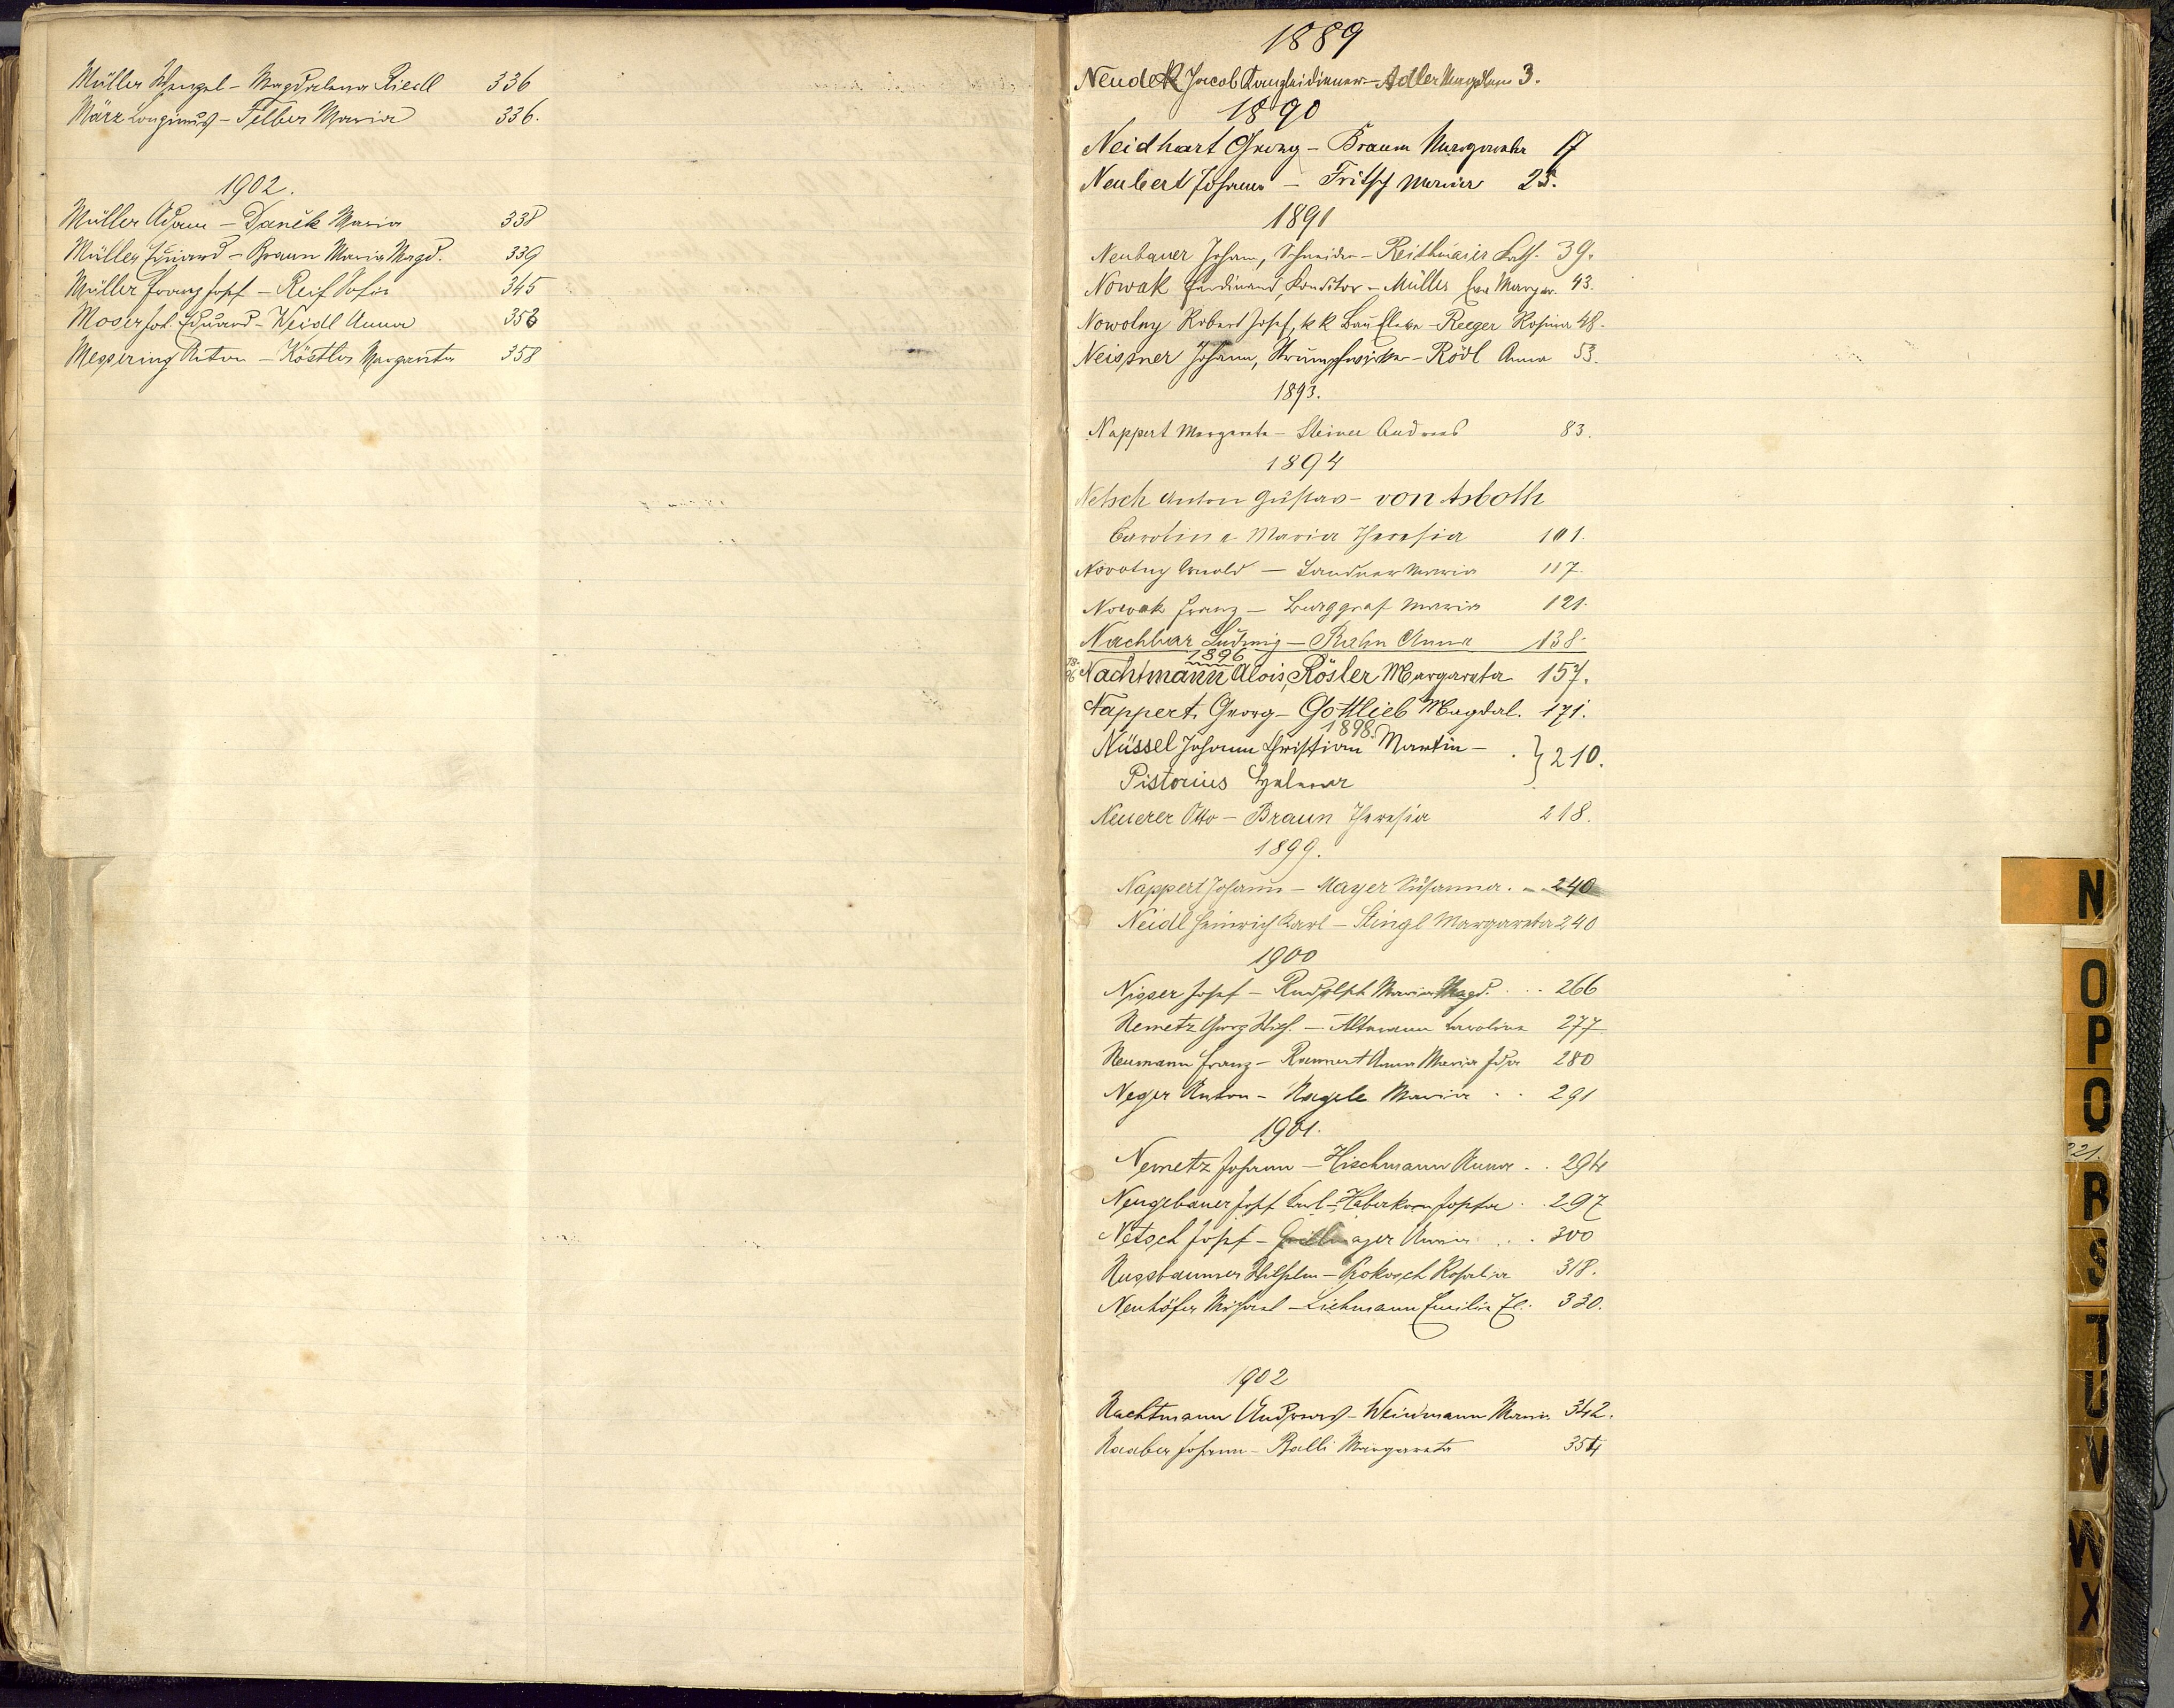 Müller Wenzel - Magdalena Riedl 336
März Longinus - Felber Maria 336.
1902.
Müller Adam - Daněk Maria 338
Müller Eduard - Braun Maria Magd. 339
Müller Franz Josef - Reif Sofie 345
Moser Joh. Eduard - Weidl Anna 358
Messering Anton - Köstler Margareta 358
1889
Neudek Jacob Kanzleidiener - Adler Magdlena 3.
1890
Neidhart Georg - Braun Margaretha 17
Neubert Johann - Fritsch Maria 25.
1891
Neubauer Johann, Schneider - Reithmaier Kath. 39.
Nowak Ferdinand, Konditor - Müller Eva Margar. 43.
Nowotny Robert Josef, k k - Reeger Rosina 48.
Neissner Johann, Strumpfwirker - Rödl Anna 53.
1893.
Nappert Margareta - Steiner Andreas 83.
1894
Netsch Anton Gustav - von Asboth
Carolina Maria Theresia 101.
Novotny Arnold - Landner Maria 117.
Nowak Franz - Burggraf Maria 121.
Nachbar Ludwig - Rahn Anna 138.
1896
18-
96 Nachtmann Alois, Rösler Margareta 157.
Nappert, Georg - Gottlieb Magdal. 171.
1898.
Nüssel Johann Christian Martin -
Pistorius } 210.
Neuerer Otto - Braun Theresia 218.
1899.
Nappert Johann - Mayer Susanna. 240
Neidl Heinrich Karl - Stingl Margareta 240
1900
Nigser Josef - Rudolph Maria Magd. 266
Nemetz Georg Wilh. - Altmann Karolina 277
Neumann Franz - Rummert Anna Maria Ida 280
Neger Anton - Nagele Maria 291
1901.
Nemetz Johann - Hischmann Anna 294
Neugebauer Josef Karl - Haberkorn Josefa 297
Netsch Josef - Anna 300
Nussbaumer Wilhelm - Prokosch Rosalia 318.
Neuhöfer Michael - Liehmann Emilie El. 330.
1902
Nachtmann Andreas - Weinmann Maria 342.
Naaber Johann - Balli Margareta 354
N
O
P
Q
221.
R
S
T
U
V
W
X